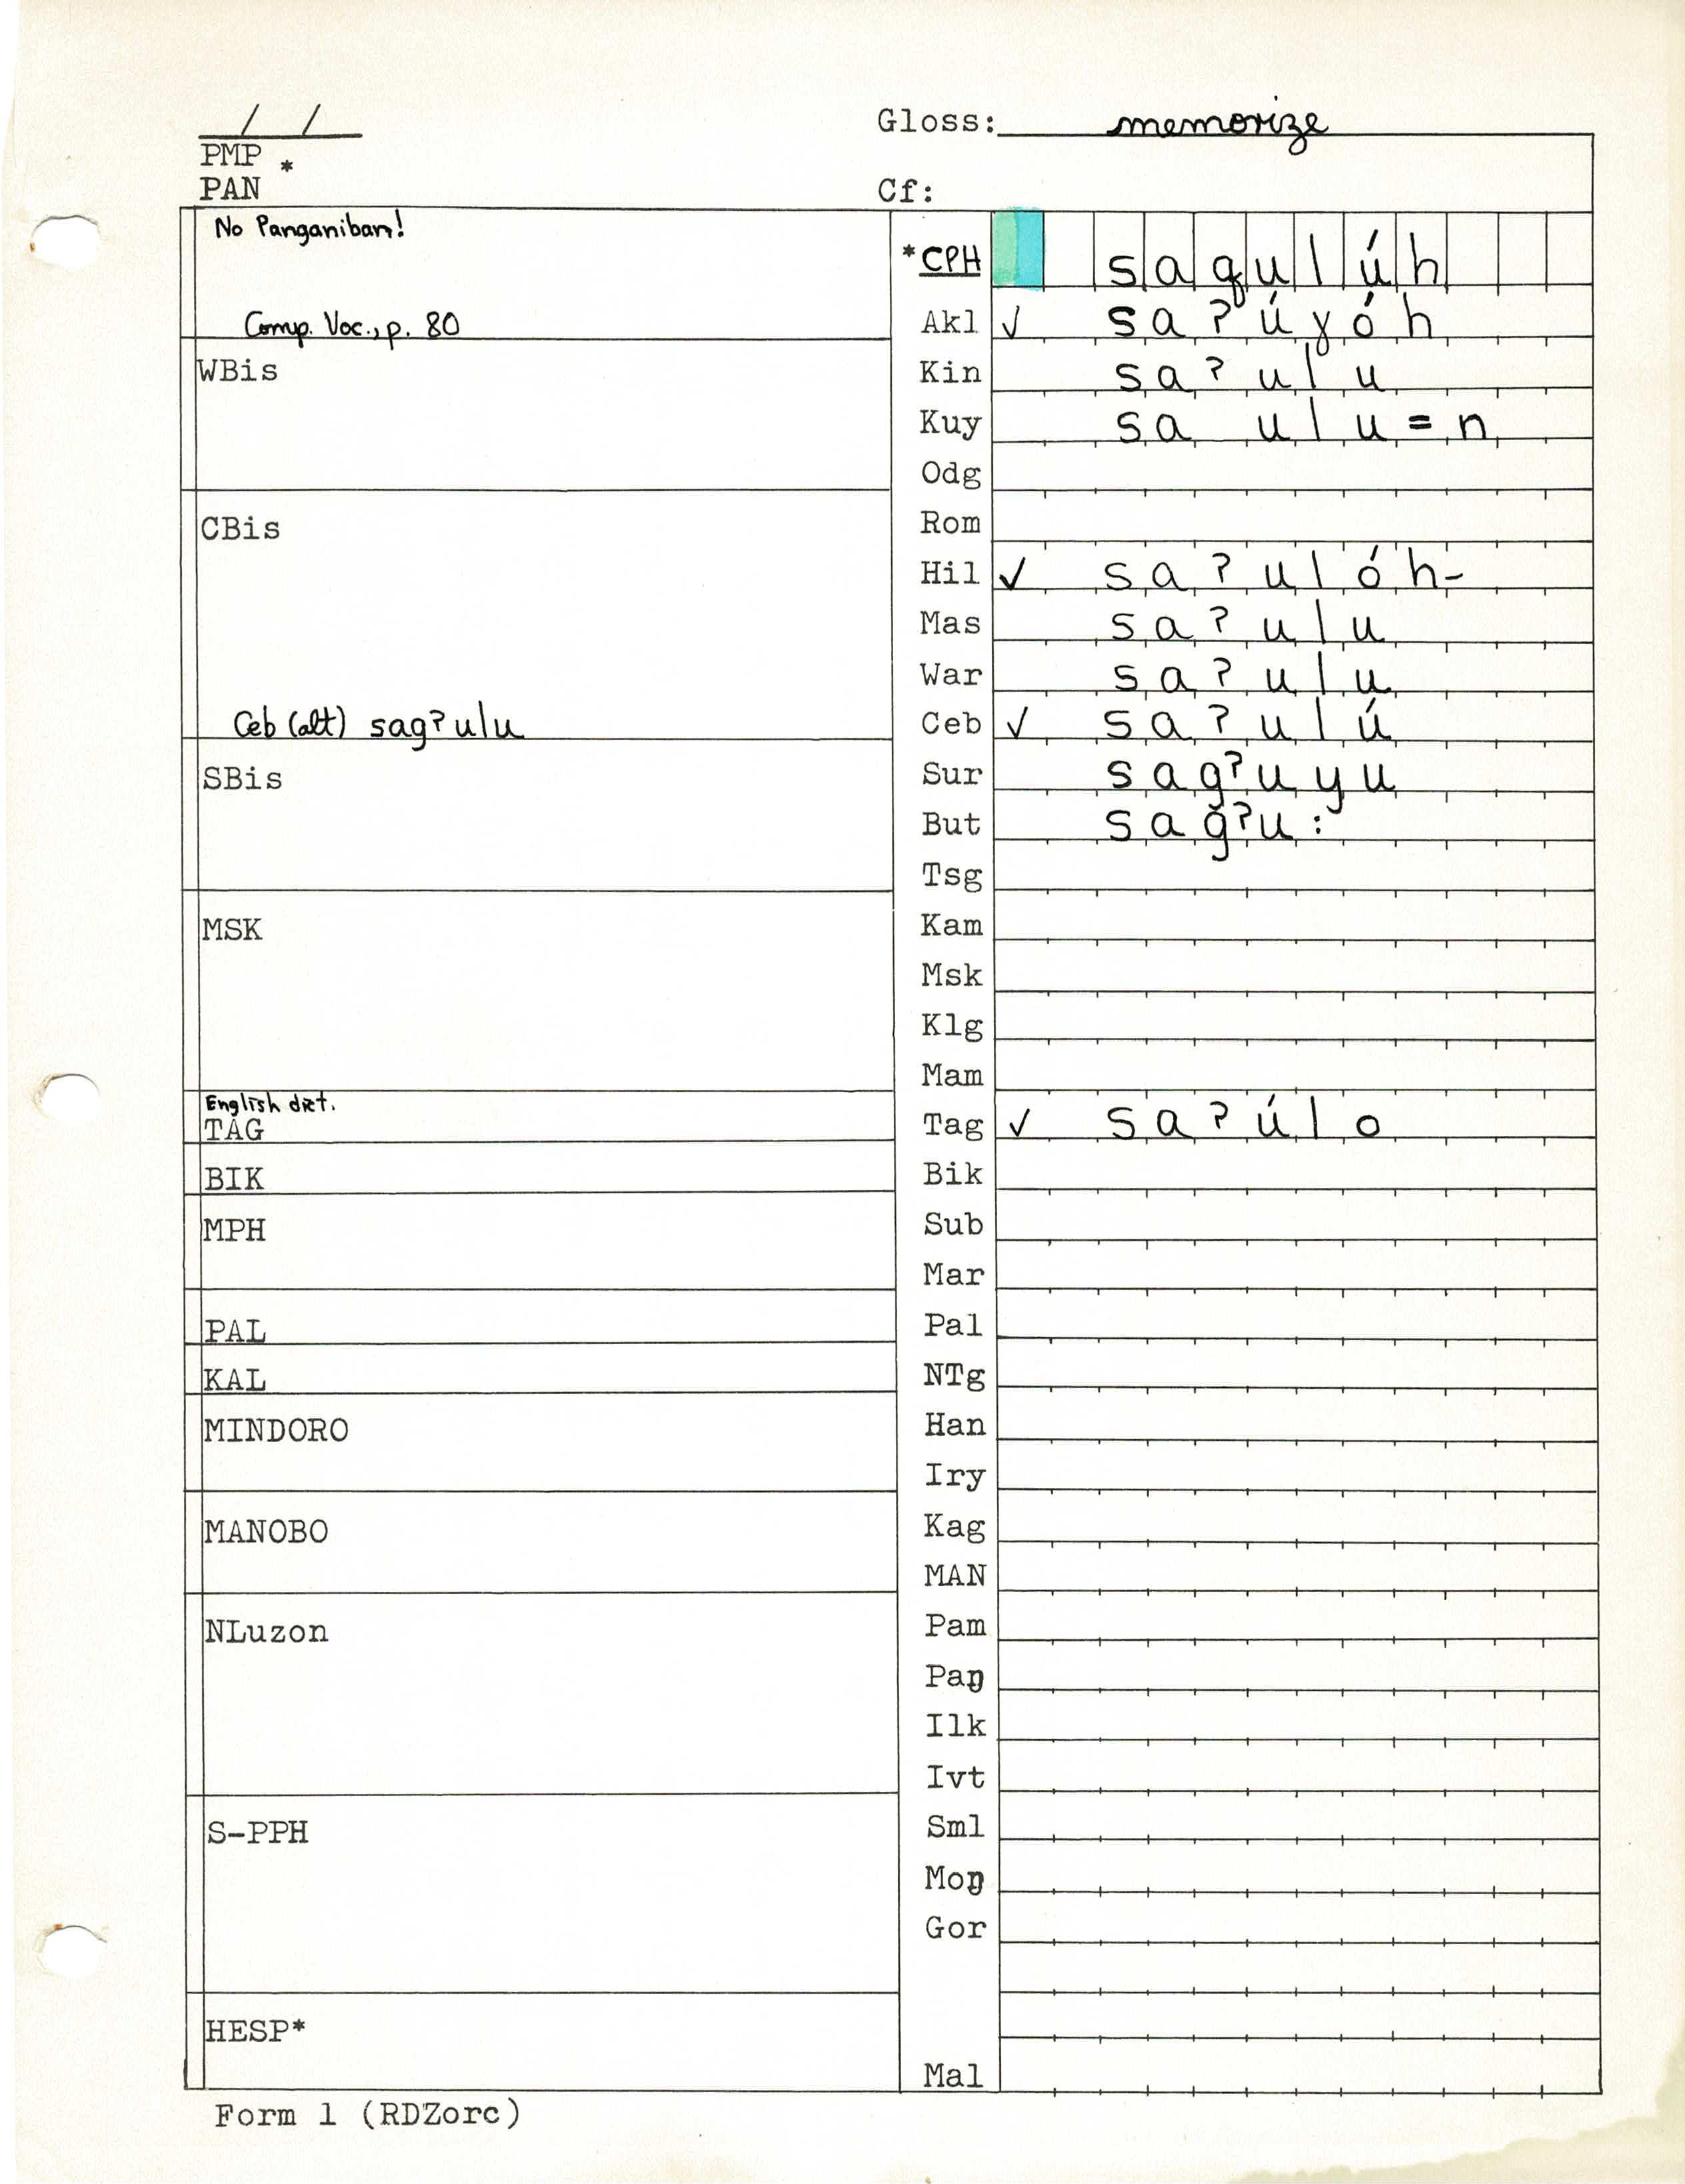 / /
Gloss: memorize
PMP *
PAN
Cf:
No Panganiban!
*CPH saqulúh
Comp. Voc., p. 80
Akl ✓ saʔúɣóh
WBis
Kin saʔulu
Kuy sa ulu=n
Odg
CBis
Rom
Hil ✓ saʔulóh-
Mas saʔulu
War saʔulu
Ceb (alt) sagʔulu
Ceb ✓ saʔulú
SBis
Sur sagʔuyu
But sag̃ʔu:
Tsg
MSK
Kam
Msk
Klg
Mam
English dict.
TAG
Tag ✓ saʔúlo
BIK
Bik
MPH
Sub
Mar
PAL
Pal
KAL
NTg
MINDORO
Han
Iry
MANOBO
Kag
MAN
NLuzon
Pam
Paŋ
Ilk
Ivt
S-PPH
Sml
Moŋ
Gor
HESP*
Mal
Form 1 (RDZorc)